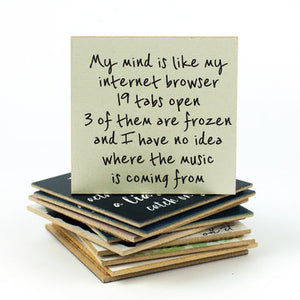 My mind is like my
internet browser
19 tabs open
3 of them are frozen
and I have no idea
where the music
is coming from